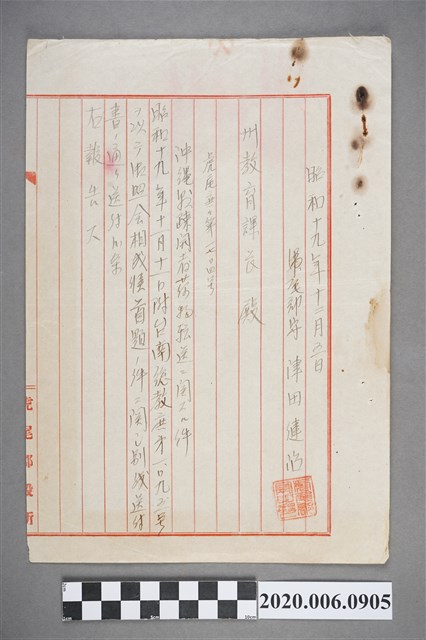 昭和十九年十二月五日
虎尾郡守 津田健治
州教育課長殿
虎尾庶第一七〇四号
沖縄 疎開者 輸送ニ関スル件
昭和十九年十一月十一日附台南総教庶第一〇九三号
ヲ以テ御照会相成候首題ノ件ニ関シ別紙送付
書ノ通リ送付
右報告ス
虎尾郡役所
2020.006.0905